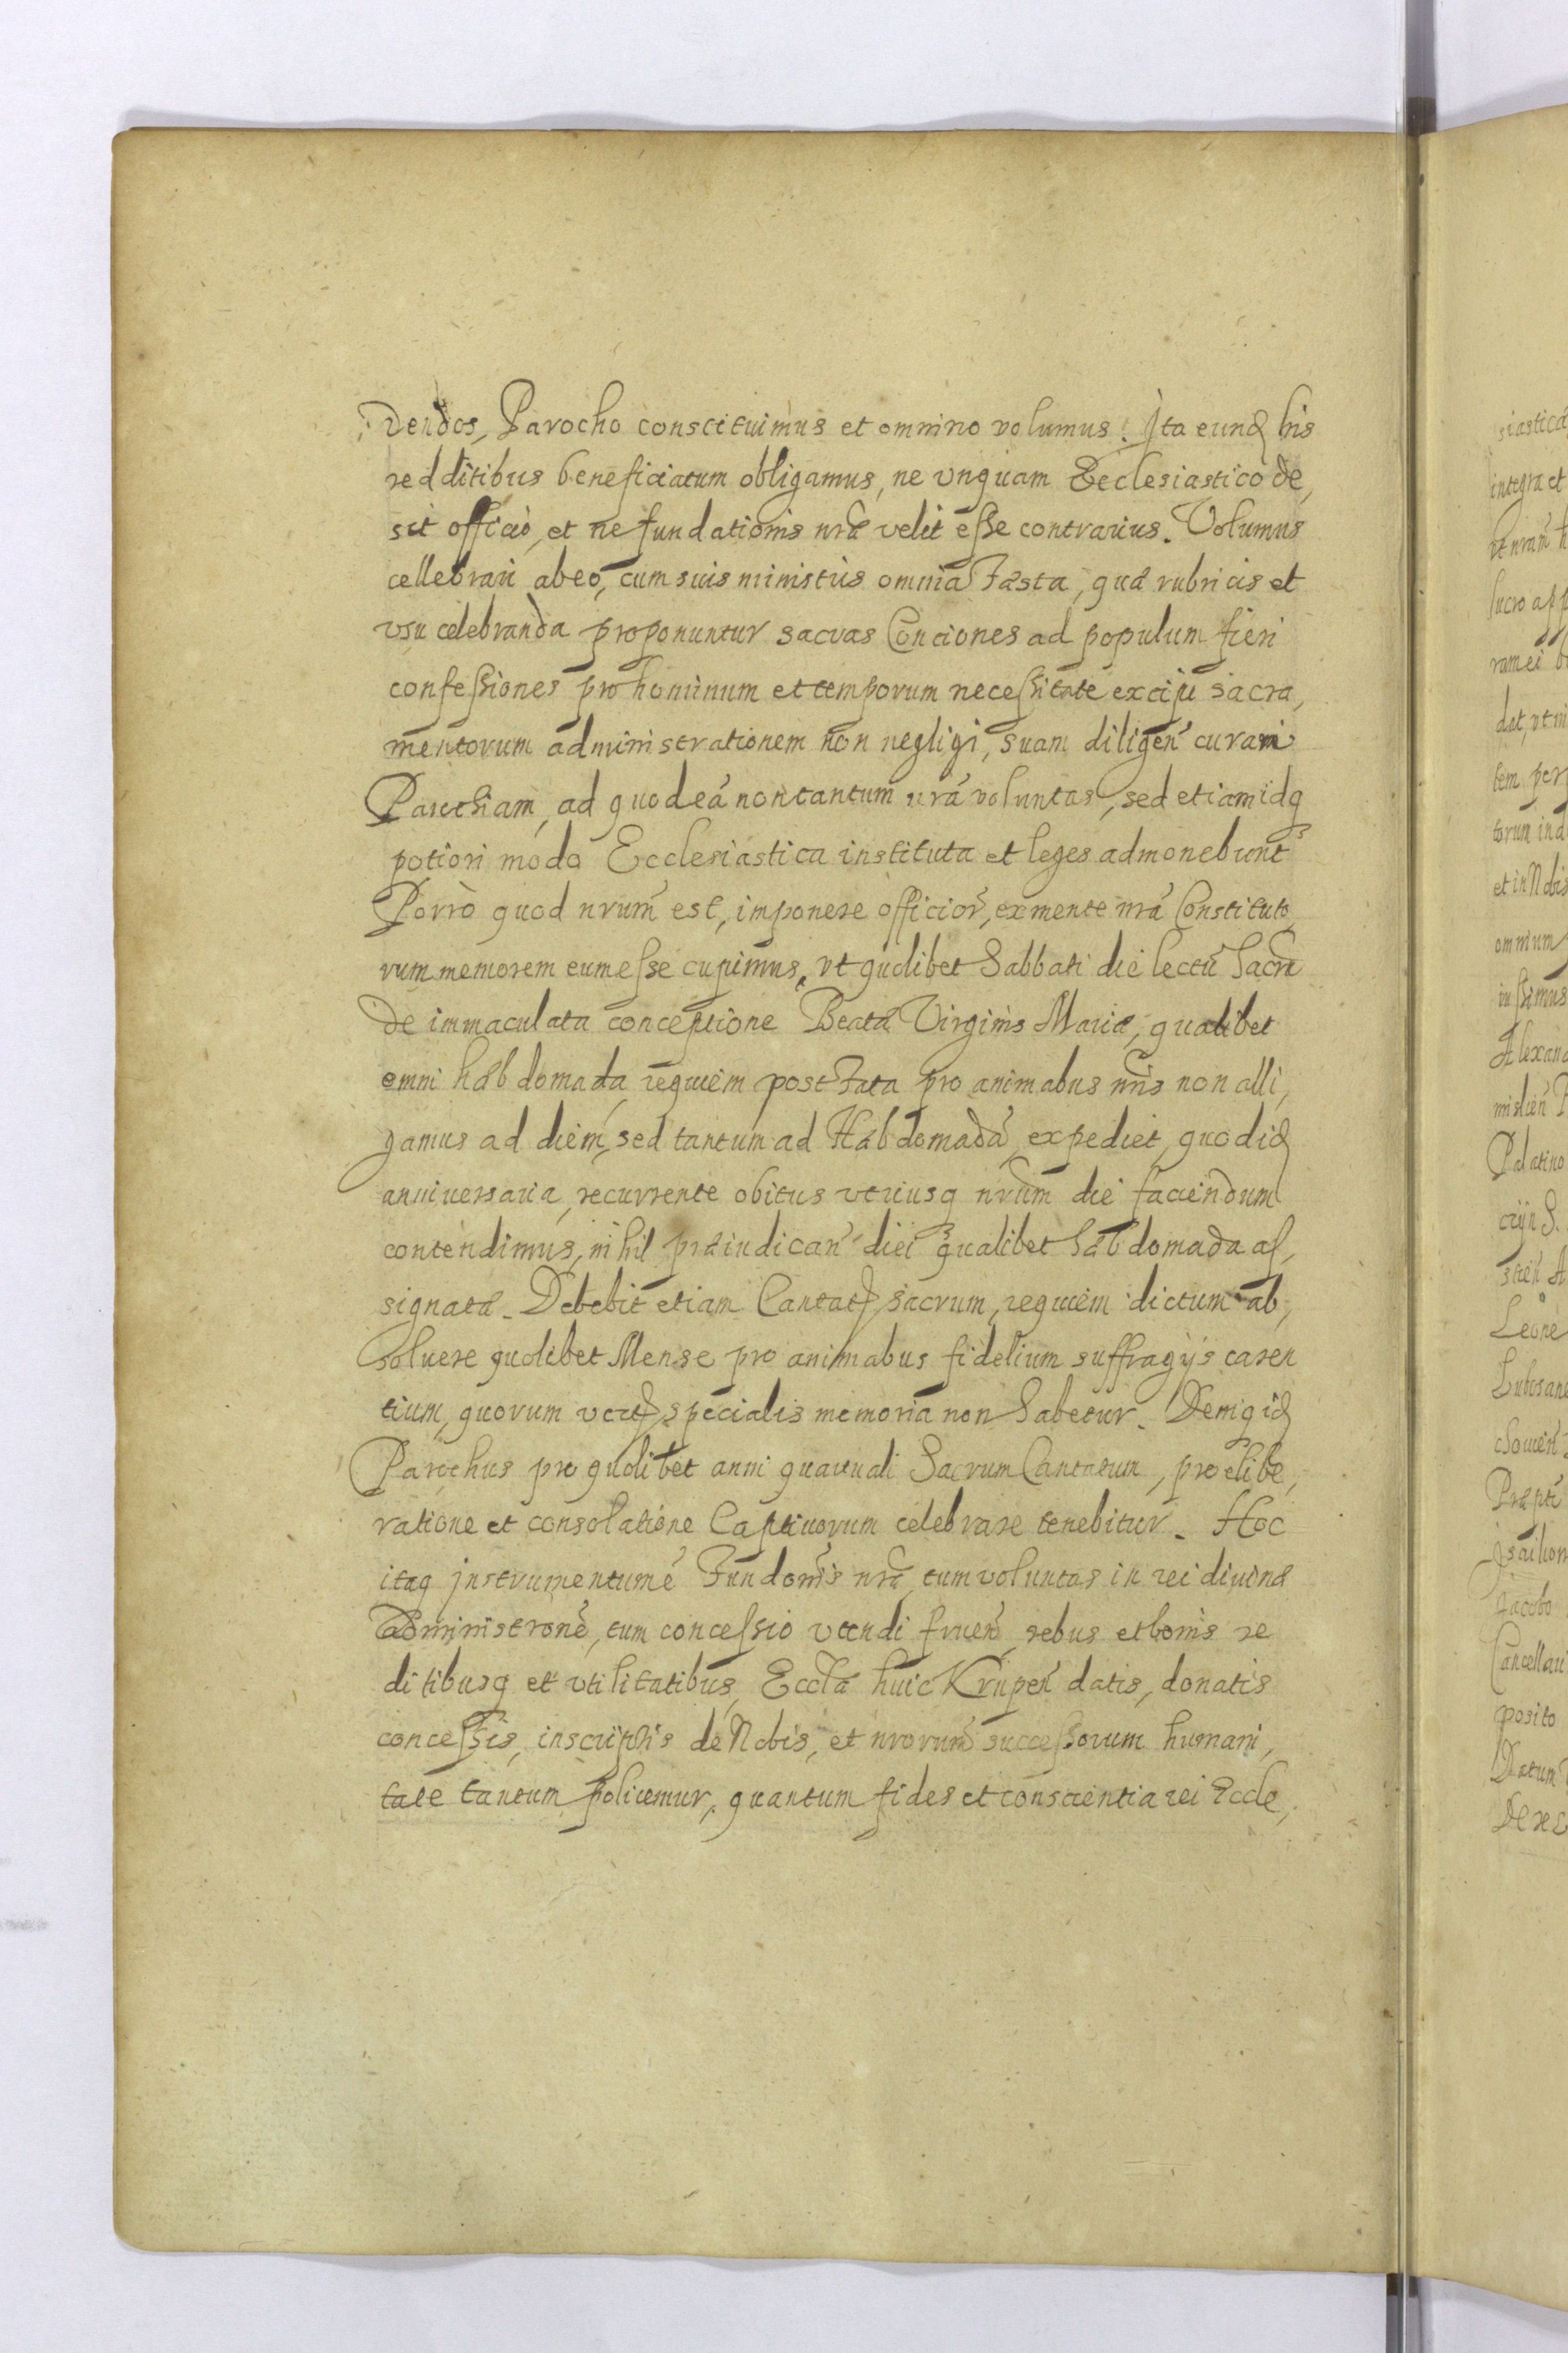 dendos, Parocho conscituimus et omnino volumus. Ita eundꝫ his
redditibus beneficiatum obligamus, ne vnquam Ecclesiastico de,
sit officio, et ne fundationis nr̃æ velit eſse contrarius. Volumus
cellebrari abeo, cum suis ministris omnia Fæsta, quæ rubricis et
vsu celebranda proponuntur sacras Conciones ad populum fieri
confeſsiones pro hominum et temporum neceſsitate excipi sacra,
mentorum administrationem non negligi, suam diligen̄ curari
Parochiam, ad quod eā non tantum nr̄a voluntas, sed etiam idq
potiori modo Ecclesiastica instituta et leges admonebunt
Porrò quod nrum̄ est, imponere officior̄, ex mente nr̄a Constituto,
rum memorem eum eſse cupimus, vt quolibet Sabbati die lectū Sacrū
de immaculata conceptione Beatæ Virginis Mariæ, qualibet
omni hæbdomada requiem post Fata pro animabus nr̄is non alli,
gamus ad diem, sed tantum ad Hæbdomadā expediet, quod idꝫ
anniuersaria, recurrente obitus vtriusq nrūm die faciendum
contendimus, nihil præiudican̄ diei qualibet hæbdomada aſ,
signatæ. Debebit etiam Cantatꝫ sacrum, requiem dictum ab,
soluere quolibet Mense pro animabus fidelium suffragijs caren
tium, quorum specialis memoria non habetur. Deniq idꝫ
Parochus pro quolibet anni quartuali Sacrum Cantatum, pro elibe,
ratione et consolatione Captiuorum celebrare tenebitur. Hoc
itaq jnstrumentumē Fundonīs nr̄æ, tum voluntas in rei diuinæ
Administronē, tum conceſsio vtendi fruen̄ rebus et bonis re
ditibusq et vtilitatibus, Eccl̄æ huic Krupen̄ datis, donatis
conceſsis, inscriptis de Nobis, et nrorum̄ succeſsorum humani,
tate tantum policemur, quantum fides et conscientia rei Eccle,